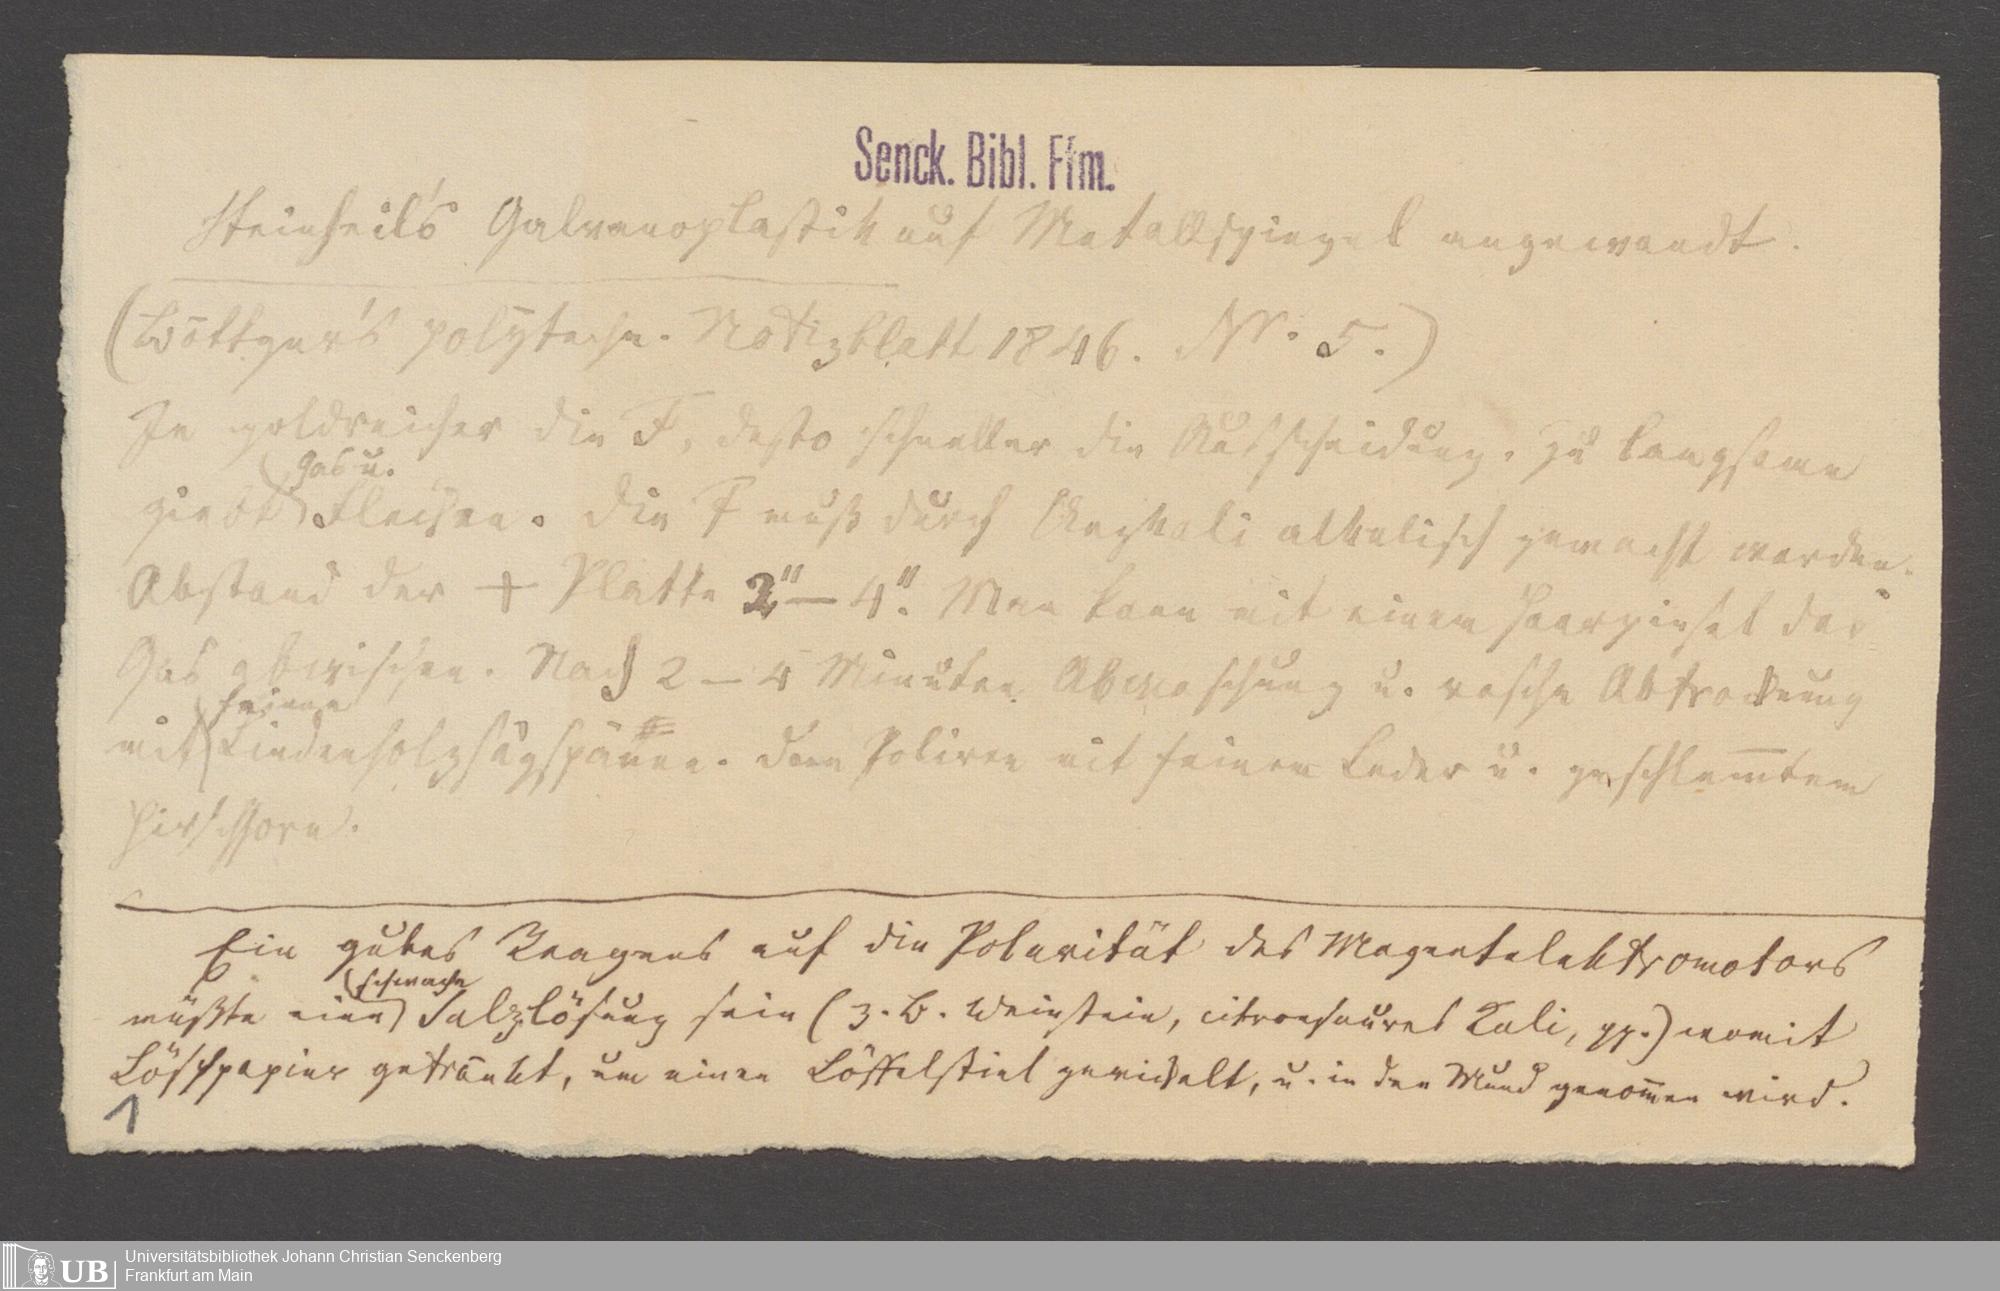 Senck. Bibl. Ffm.
Steinheil's Galvanoplastik auf Metallspiegel angewandt.
(Böttger's polytechn. Notizblatt 1846. Nr. 5.)
Je goldreicher die F, desto schneller die Ausscheidung. Zu langsame
gas u.
giebt Flecken. Die F muß durch Aezkali alkalisch gemacht werden.
Abstand der + Platte 2"– 4". Man kann mit einem Haarpinsel das
Gas abwischen. Nach 2 – 4 Minuten Abwaschung u. rasche Abtrocknung
feinen
mit Lindenholzsägspänen. dann Poliren mit feinem Leder u. geschlemmtem
Hirschhorn.
Ein gutes Reagens auf die Polarität des Magentelektromotors
schwache
müßte eine Salzlösung sein (z. B. Weinstein, citronsaures Kali, pp.) womit
Löschpapier getränkt, um einen Löffelstiel gewickelt, u. in den Mund genom̅en wird.
1
UB
Universitätsbibliothek Johann Christian Senckenberg
Frankfurt am Main